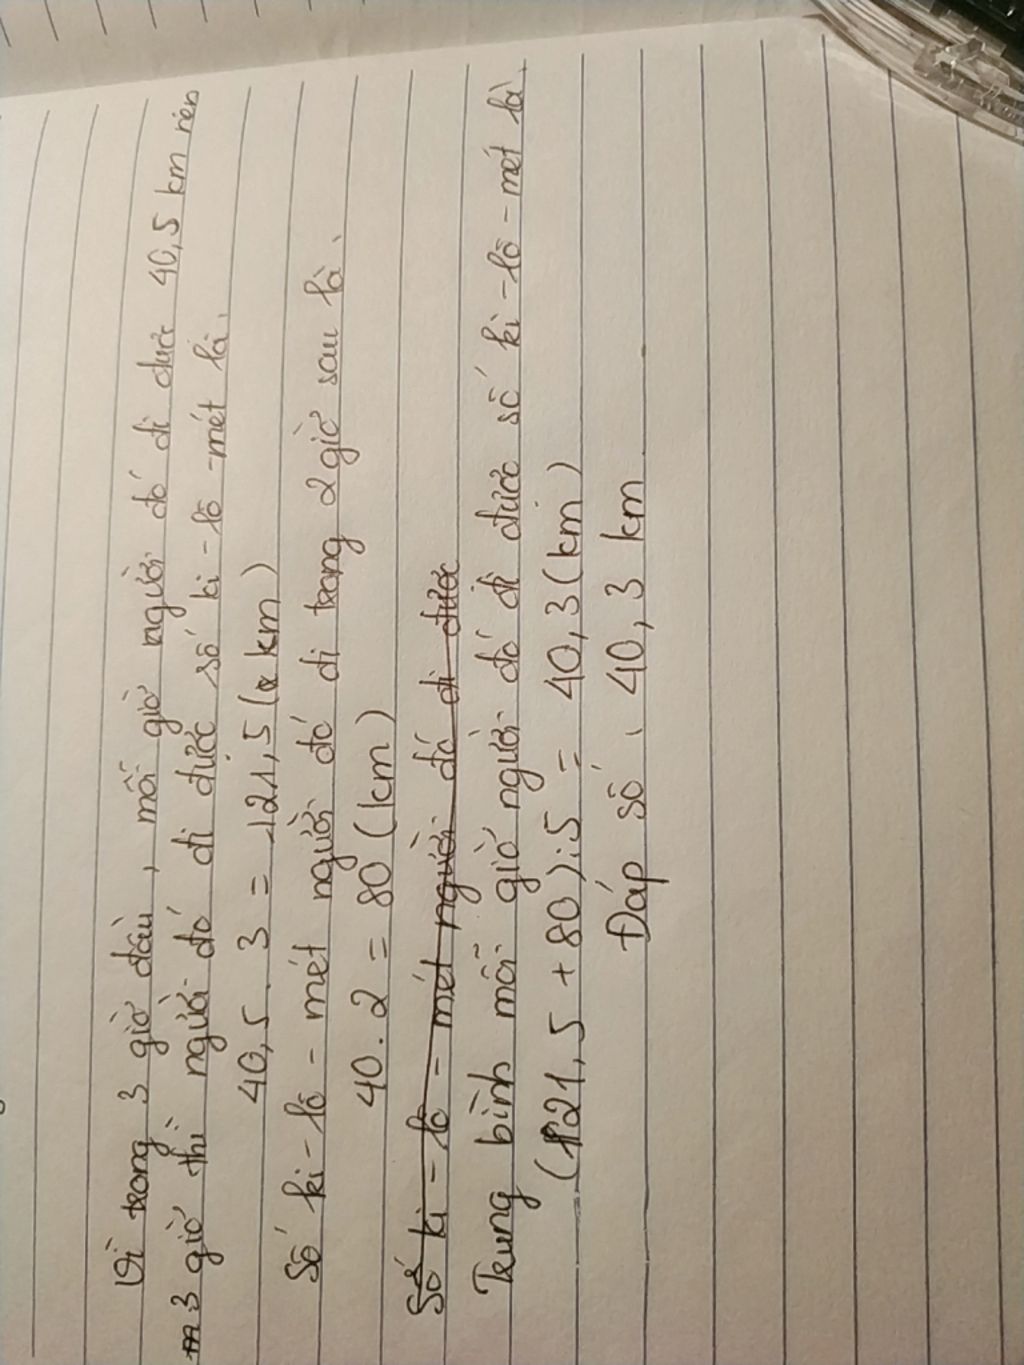 Vì trong 3 giờ đầu, mỗi giờ người đó đi được 40,5 km nên
3 giờ thì người đó đi được số ki-lô-mét là:
40,5 . 3 = 121,5 (km)
Số ki-lô-mét người đó đi trong 2 giờ sau là:
40 . 2 = 80 (km)
Số ki-lô-mét người đó đi được
Trung bình mỗi giờ người đó đi được số ki-lô-mét là:
(121,5 + 80) : 5 = 40,3 (km)
Đáp số: 40,3 km